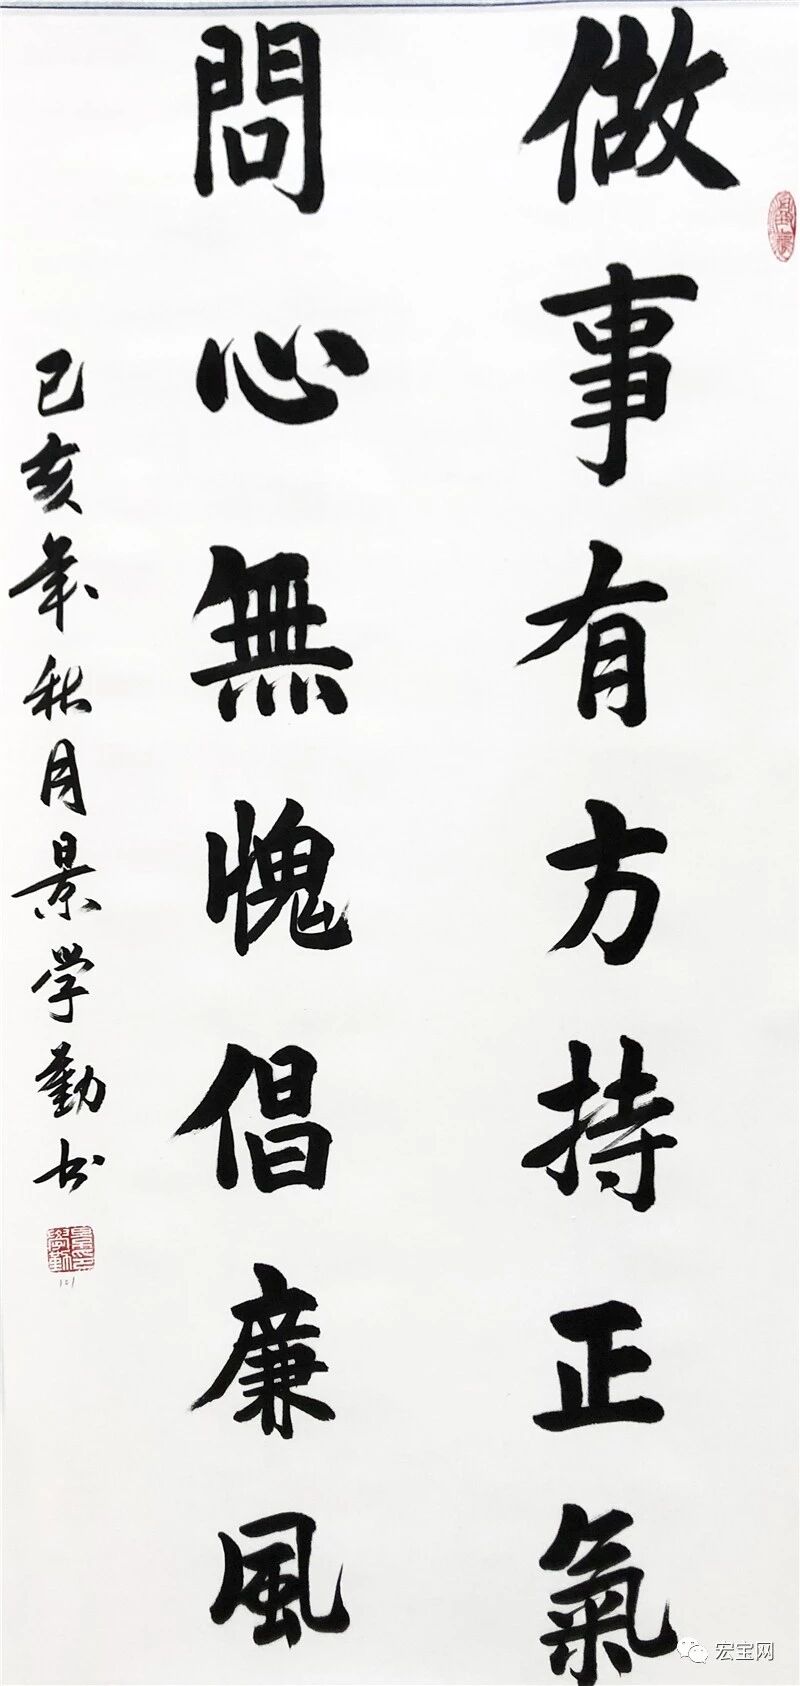 做事有方持正氣
問心無愧倡廉風
己亥年秋月景学勤书
宏宝网